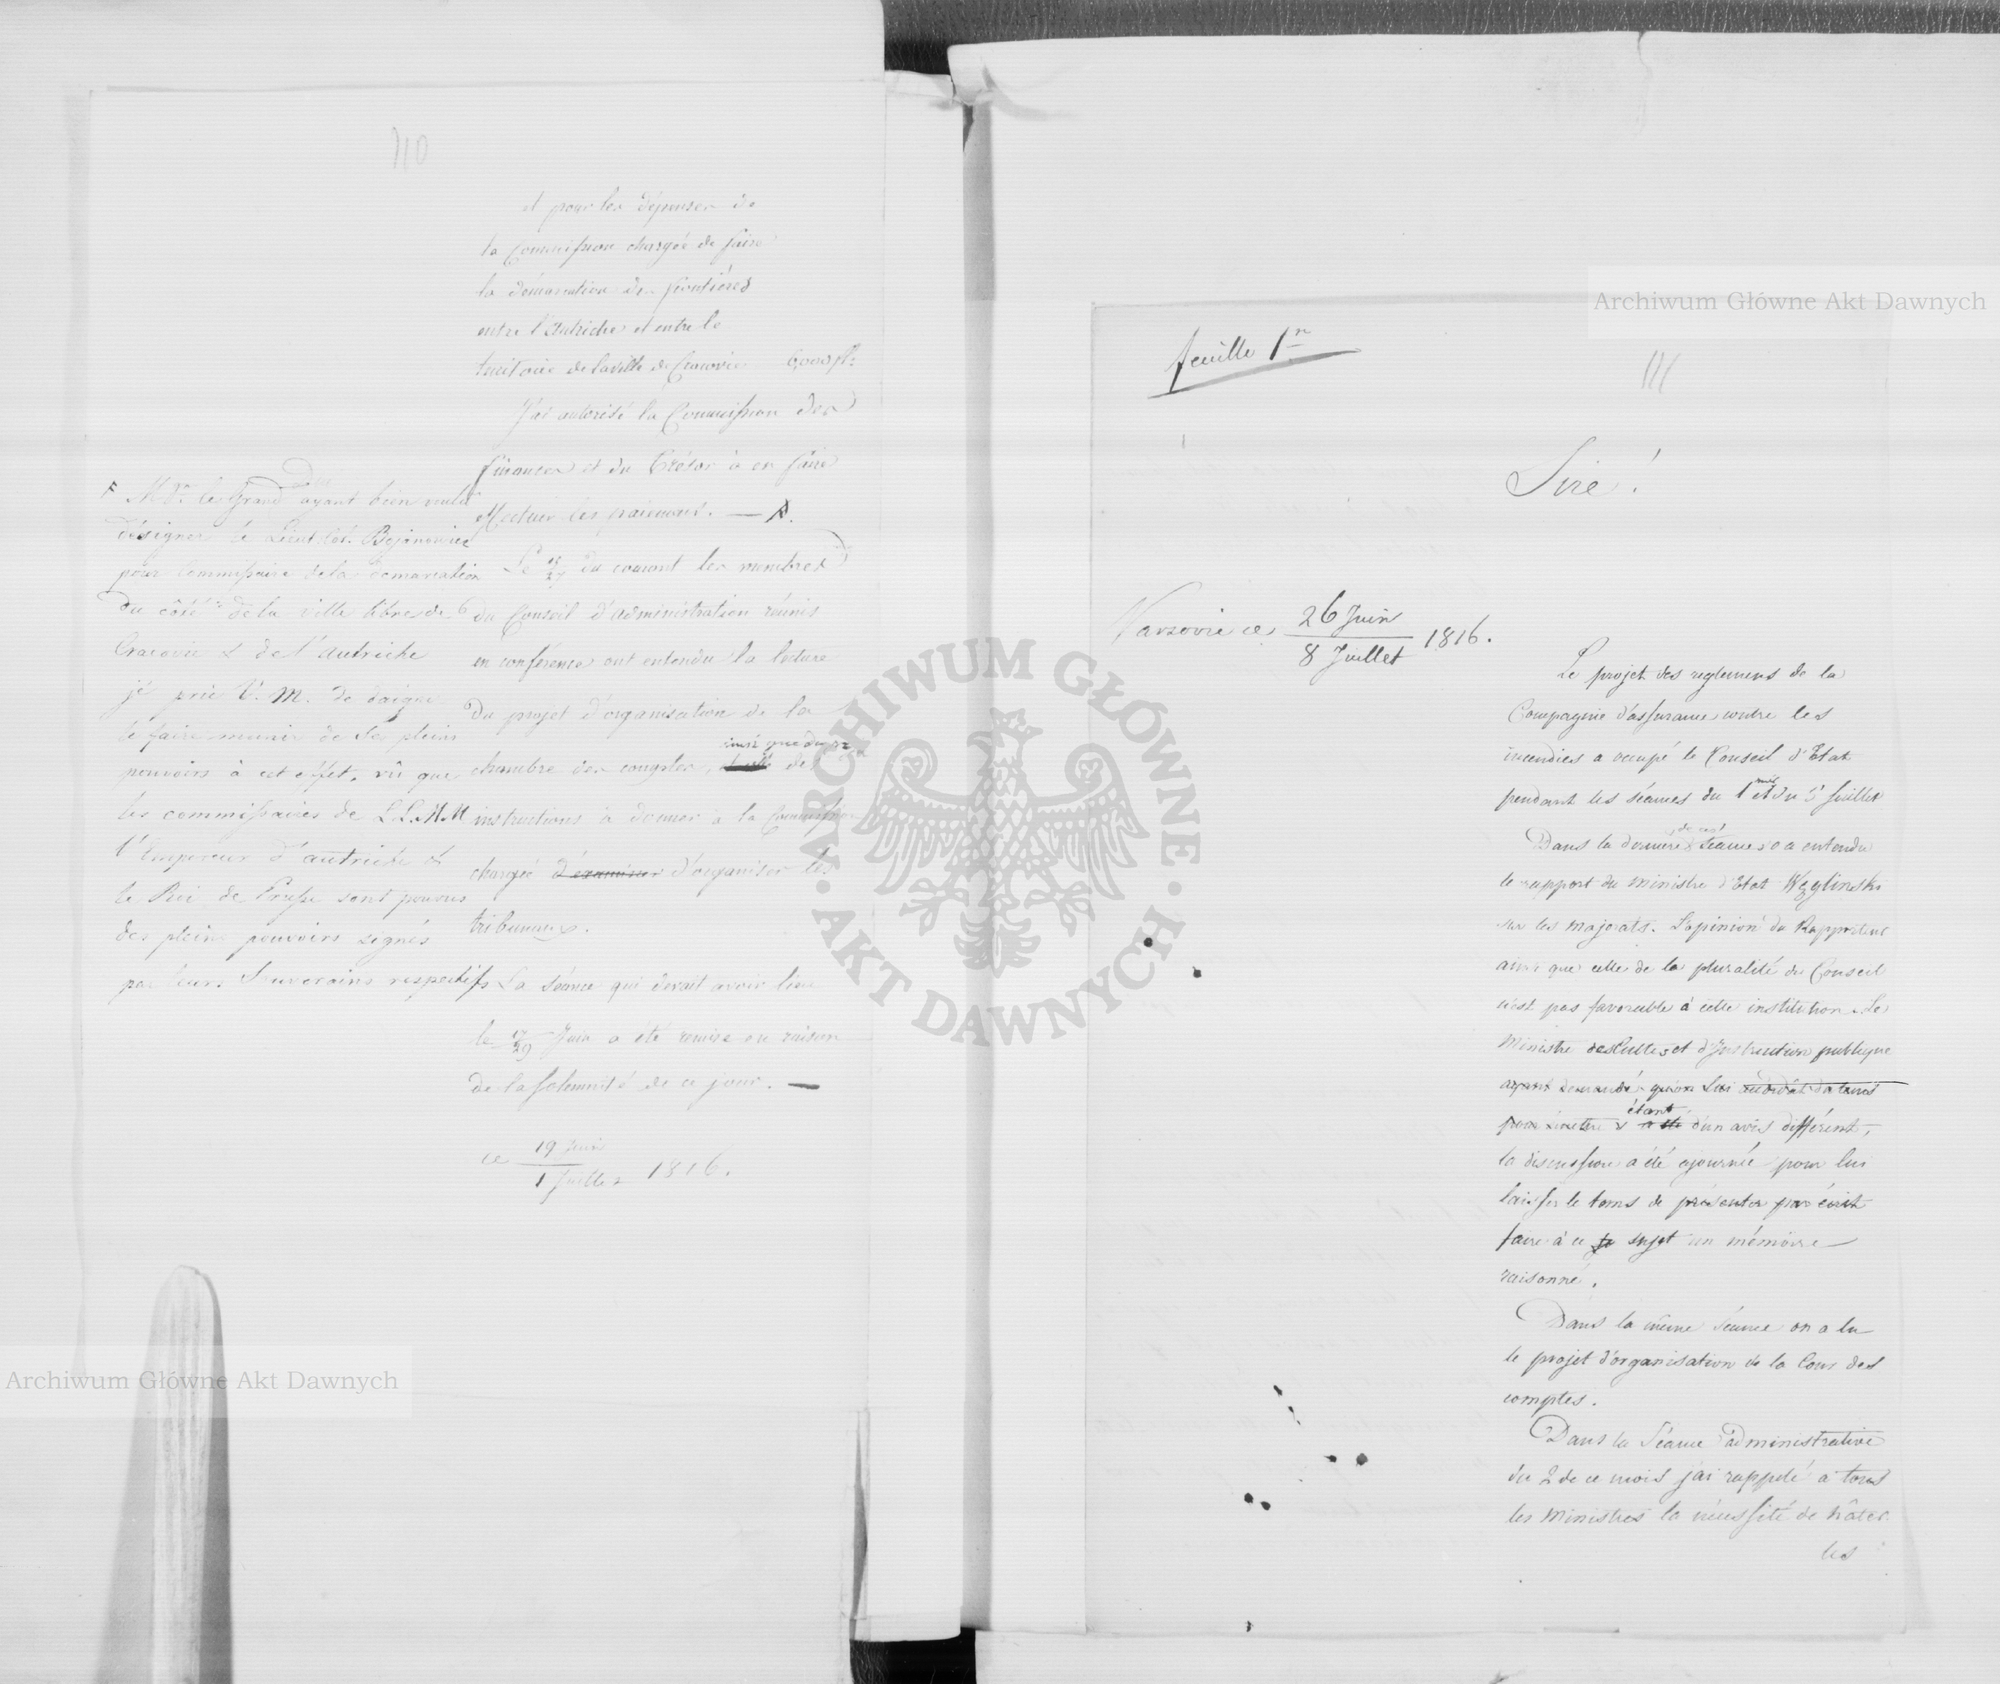 110
et pour les dépenses de
la Commission chargée de faire
la démarcation des frontières
entre l'Autriche et entre le
territoire de la ville de Cracovie 6,000 fl:
J'ai autorisé la Commission des
finances et du Trésor à en faire
effectuer les paiemens. — F.
Le 15/27 du courant les membres
du Conseil d'administration réunis
en conférence ont entendu la lecture
du projet d'organisation de la
ainsi que du
chambre des comptes, des
instructions à donner à la Commission
chargée d'examiner d'organiser les
tribunaux.
La séance qui devait avoir lieu
le 17/29 Juin a été remise en raison
de la solemnité de ce jour. —
ce 19 Juin / 1 Juillet 1816.
F Mgr. le Grand Duc ayant bien voulu
désigner le Lieut. Col. Bojanowicz
pour Commissaire de la démarcation
du côté de la ville libre de
Cracovie & de l'autriche
je prie V. M. de daigner
le faire munir de Ses pleins
pouvoirs à cet effet, vû que
les commissaires de L.L.M.M
l'Empereur d'autriche &
le Roi de Prusse sont pourvus
des pleins pouvoirs signés
par leurs Souverains respectifs
Archiwum Główne Akt Dawnych
Archiwum Główne Akt Dawnych
feuille 1re
111
Sire!
Varsovie ce 26 Juin / 8 Juillet 1816.
Le projet des reglemens de la
Compagnie d'assurance contre les
incendies a occupé le Conseil d'Etat
pendant les séances du 1er et du 5 Juillet
Dans la dernière séance on a entendu
le rapport du ministre d'Etat Węglinski
sur les majorats. L'opinion du Rapporteur
ainsi que celle de la pluralité du Conseil
n'est pas favorable à cette institution. Le
Ministre des Cultes et d'Instruction publique
ayant demandé qu'on lui accordât du tems
étant
pour émettre s a été d'un avis différent,
la discussion a été ajournée pour lui
laisser le tems de présenter par écrit
faire à ce sujet un mémoire
raisonné.
Dans la même séance on a lu
le projet d'organisation de la Cour des
comptes.
Dans la Séance administrative
du 2 de ce mois j'ai rappelé à tous
les Ministres la nécessité de hâter
les
ARCHIWUM GŁÓWNE AKT DAWNYCH